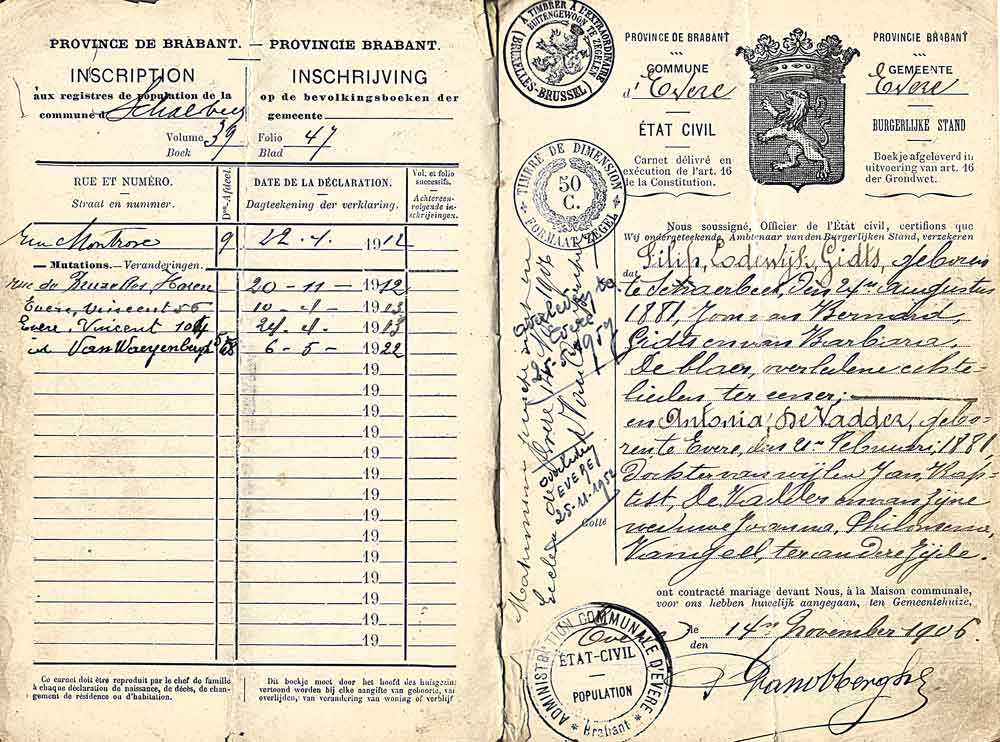 PROVINCE DE BRABANT. — PROVINCIE BRABANT.
INSCRIPTION INSCHRIJVING
aux registres de population de la op de bevolkingsboeken der
commune d gemeente
Volume 39 Folio 47
Boek Blad
RUE ET NUMÉRO. DATE DE LA DÉCLARATION. Vol. et folio successifs.
Straat en nummer. Dagteekening der verklaring. Achtereenvolgende inschrijvingen.
rue Montrose 9 22 - 1 1912
— Mutations. — Veranderingen.
20 - 11 - 1912
Evere, Vincent 1913
Evere, Vincent 1913
id 6 - 5 - 1922
19
19
19
19
19
19
19
19
19
19
19
19
19
19
Ce carnet doit être reproduit par le chef de famille
à chaque déclaration de naissance, de décès, de chan-
gement de résidence ou d'habitation.
Dit boekje moet door het hoofd des huisgezins
vertoond worden bij elke aangifte van geboorte, van
overlijden, van verandering van woning of verblijf
A TIMBRER A L'EXTRAORDINAIRE
BUITENGEWOON TE ZEGELEN
(BRUXELLES-BRUSSEL)
TIMBRE DE DIMENSION
50
C.
FORMAAT ZEGEL
PROVINCE DE BRABANT PROVINCIE BRABANT
COMMUNE GEMEENTE
d' Evere Evere
ÉTAT CIVIL BURGERLIJKE STAND
Carnet délivré en Boekje afgeleverd in
exécution de l'art. 16 uitvoering van art. 16
de la Constitution. der Grondwet.
Nous soussigné, Officier de l'État civil, certifions que
Wij ondergeteekende, Ambtenaar van den Burgerlijken Stand, verzekeren
dat Filip, Lodewijk, Gidts, geboren
te Schaerbeek, den 24en augustus
1881, zoon van Bernard,
Gidts en van Barbara,
De blaer, overledene echte-
lieden ter eener;
en Antonia, De Vadder, gebo-
ren te Evere, den Februari, 1881
Dochter van wijlen Jan, Bap-
tist, De Vadder en van zyne
weduwe Joanna, Philomena,
Vangeel, ter andere zijde.
ont contracté mariage devant Nous, à la Maison communale,
voor ons hebben huwelijk aangegaan, ten Gemeentehuize,
le
den 14en November 1906.
overleden
EVERE
25-11-1952
ADMINISTRATION COMMUNALE D'EVERE
Evere
ÉTAT-CIVIL
POPULATION
Brabant